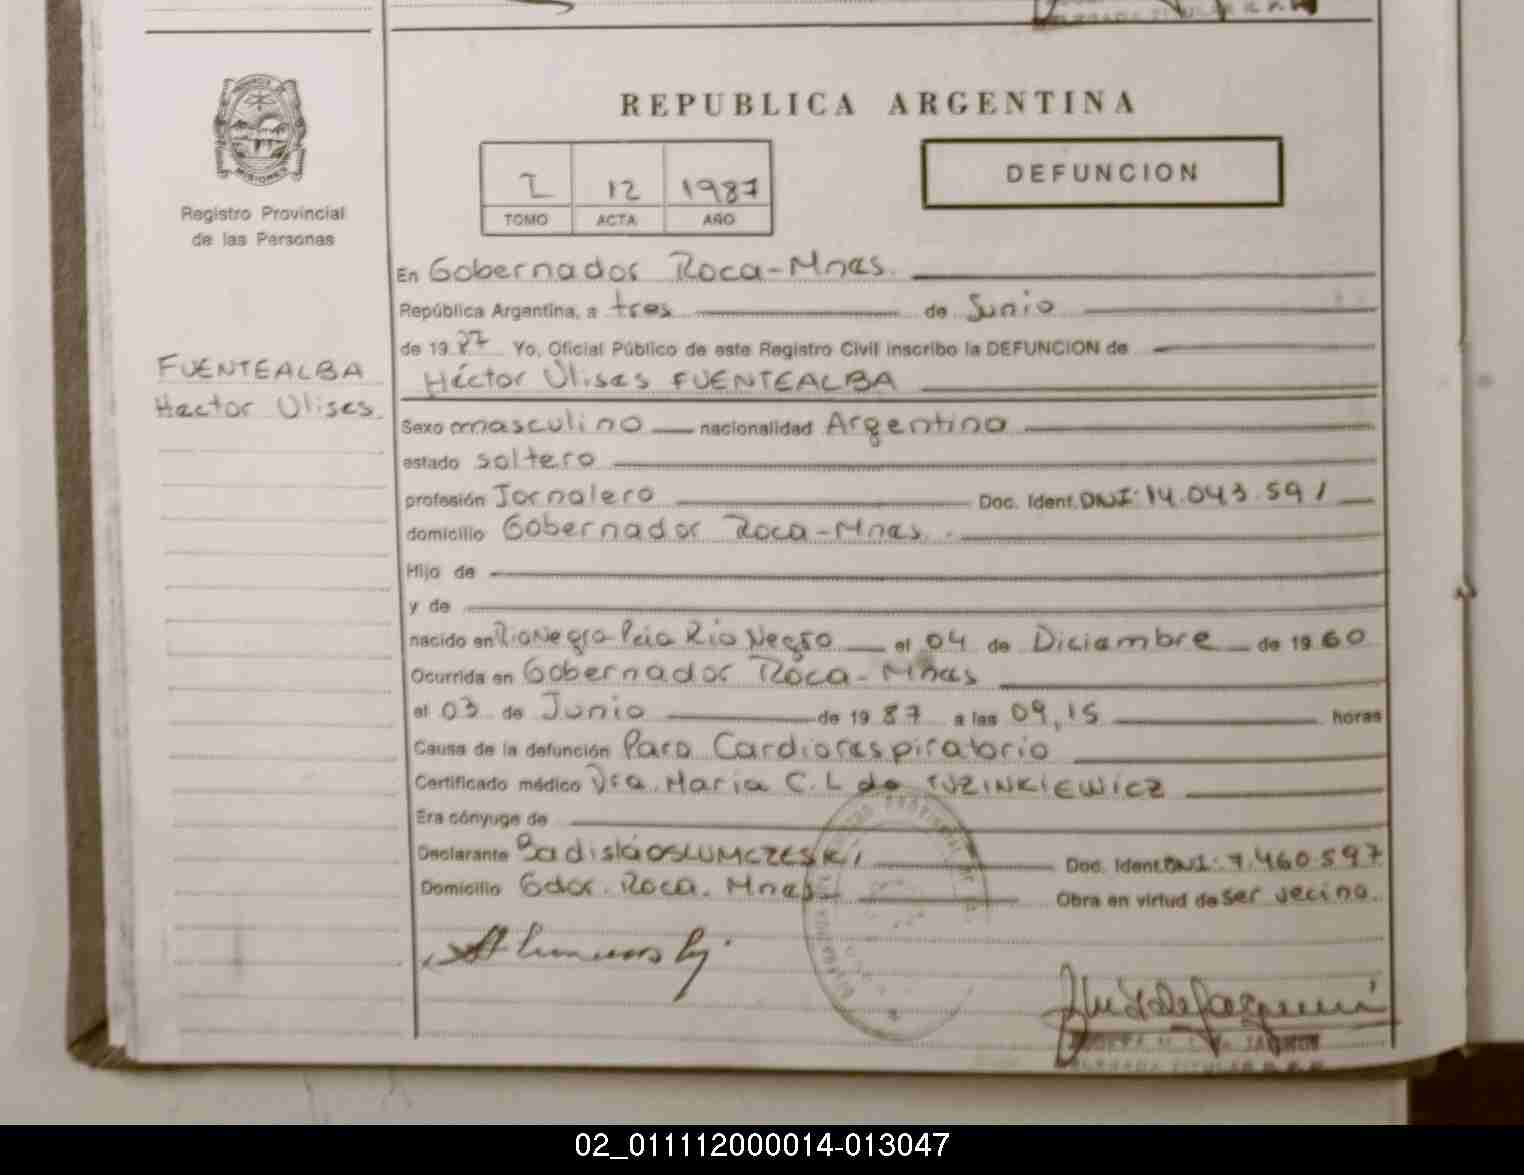 REPUBLICA ARGENTINA
MISIONES
Registro Provincial
de las Personas
I 12 1987
TOMO ACTA AÑO
DEFUNCION
FUENTEALBA
Hector Ulises
En Gobernador Roca-Mnes.
República Argentina, a tres de Junio
de 1987 Yo, Oficial Público de este Registro Civil inscribo la DEFUNCION de
Héctor Ulises FUENTEALBA
Sexo masculino nacionalidad Argentina
estado soltero
profesión Jornalero Doc. Ident. DNI: 14.043.591
domicilio Gobernador Roca-Mnes.
Hijo de
y de
nacido en Rio Negro Pcia Rio Negro el 04 de Diciembre de 1960
Ocurrida en Gobernador Roca-Mnes
el 03 de Junio de 1987 a las 09,15 horas
Causa de la defunción Paro Cardiorespiratorio
Certificado médico Dra. Maria C. L de
Era cónyuge de
Declarante Doc. Ident. DNI: 7.460.597
Domicilio Gdor. Roca. Mnes. Obra en virtud de ser vecino.
02_011112000014-013047